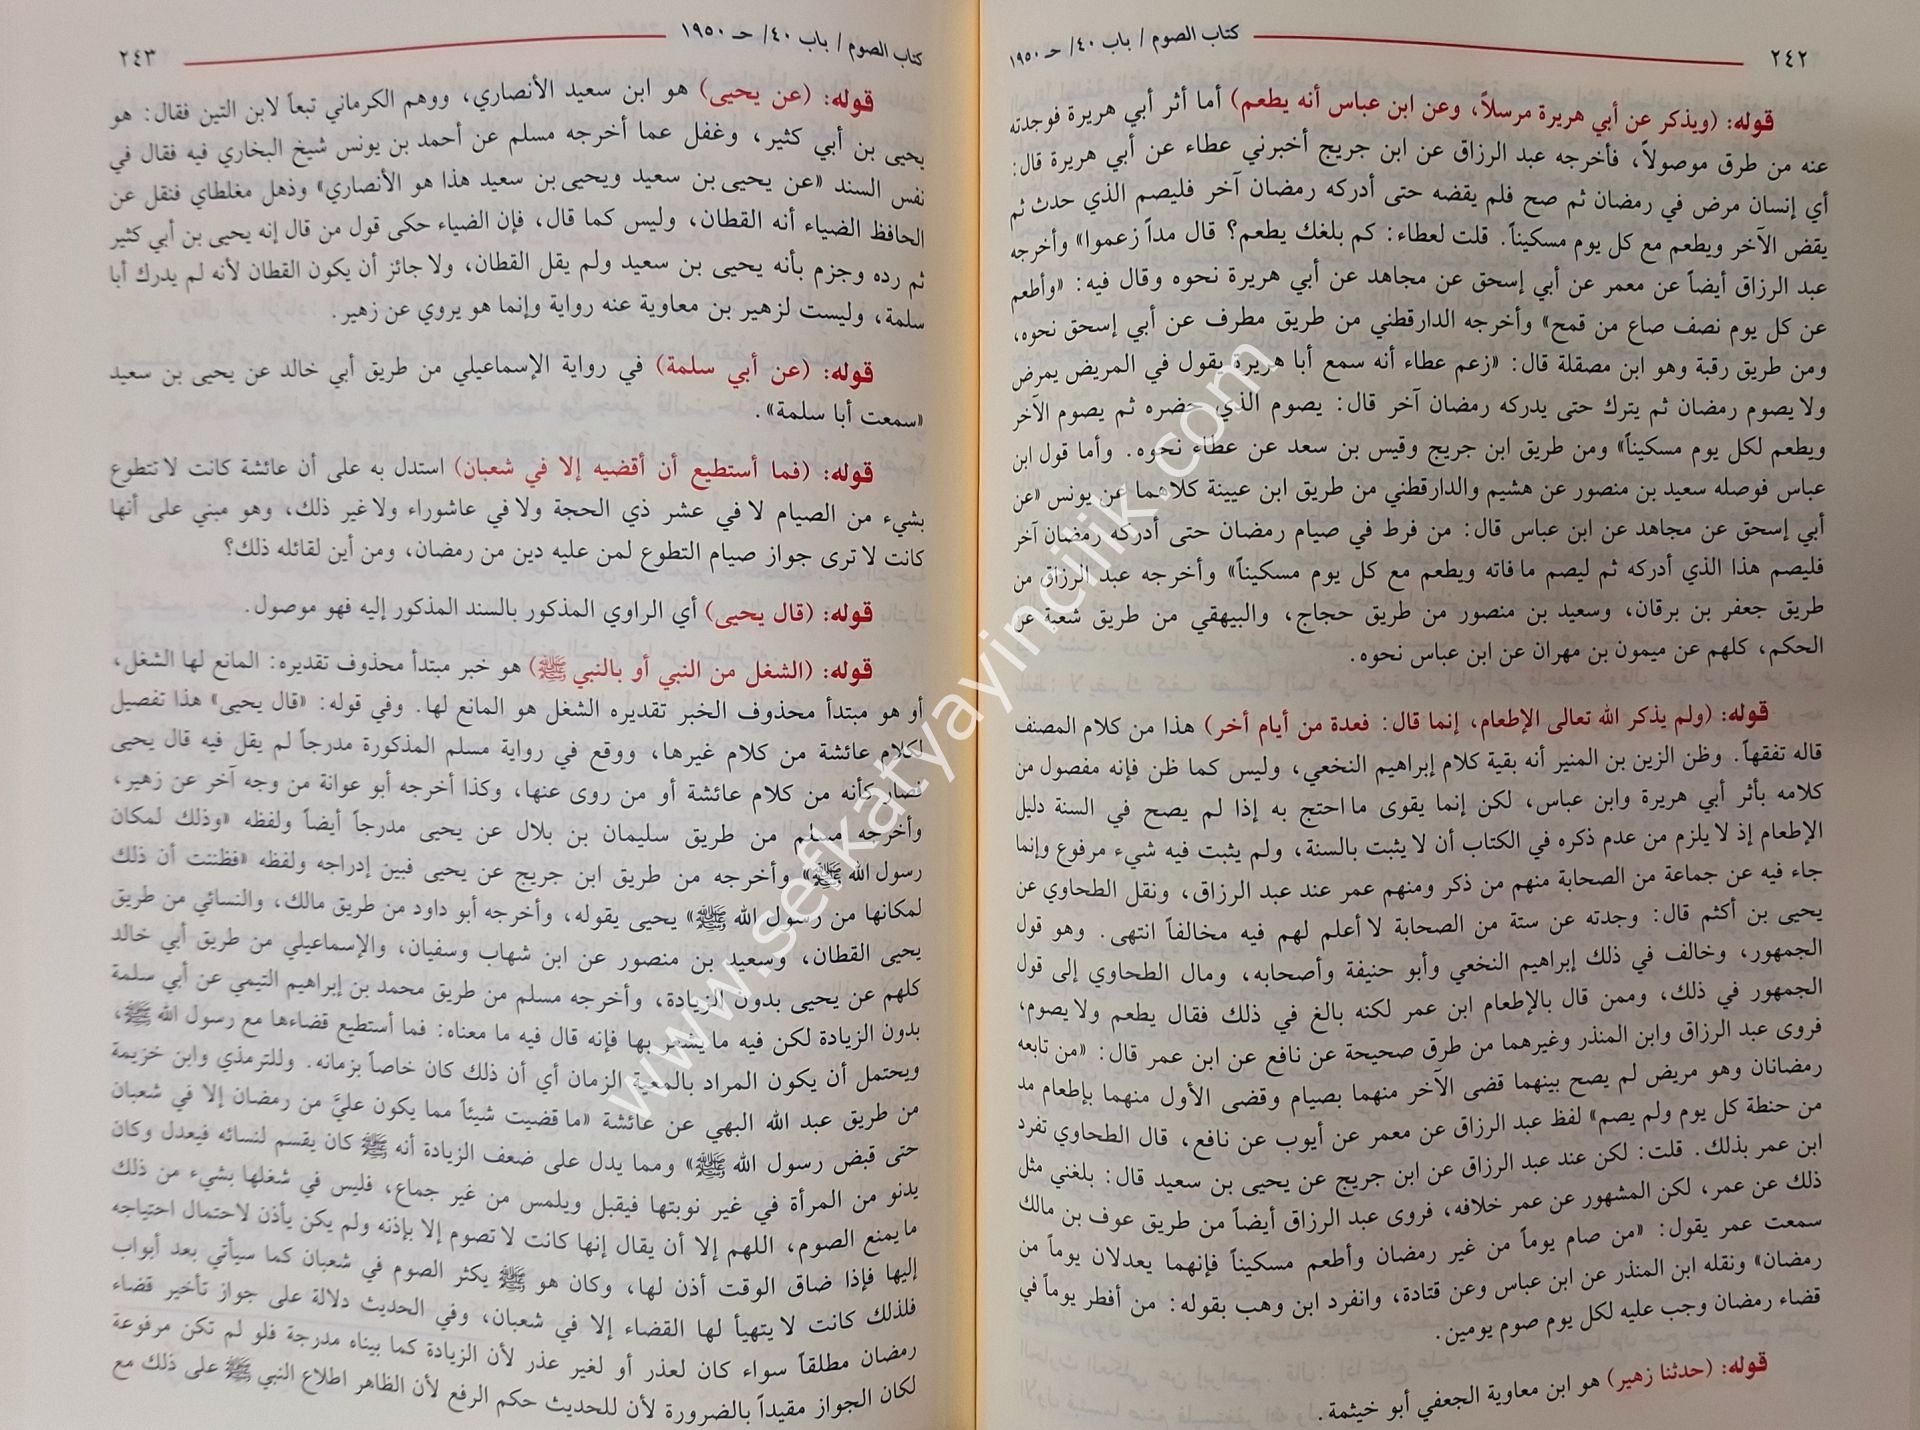 ٢٤٢
كتاب الصوم / باب ٤٠/ حـ ١٩٥٠
قوله: (ويذكر عن أبي هريرة مرسلاً، وعن ابن عباس أنه يطعم) أما أثر أبي هريرة فوجدته
عنه من طرق موصولاً، فأخرجه عبد الرزاق عن ابن جريج أخبرني عطاء عن أبي هريرة قال:
أي إنسان مرض في رمضان ثم صح فلم يقضه حتى أدركه رمضان آخر فليصم الذي حدث ثم
يقض الآخر ويطعم مع كل يوم مسكيناً. قلت لعطاء: كم بلغك يطعم؟ قال مداً زعموا» وأخرجه
عبد الرزاق أيضاً عن معمر عن أبي إسحق عن مجاهد عن أبي هريرة نحوه وقال فيه: «وأطعم
عن كل يوم نصف صاع من قمح» وأخرجه الدارقطني من طريق مطرف عن أبي إسحق نحوه،
ومن طريق رقبة وهو ابن مصقلة قال: «زعم عطاء أنه سمع أبا هريرة يقول في المريض يمرض
ولا يصوم رمضان ثم يترك حتى يدركه رمضان آخر قال: يصوم الذي حضره ثم يصوم الآخر
ويطعم لكل يوم مسكيناً» ومن طريق ابن جريج وقيس بن سعد عن عطاء نحوه. وأما قول ابن
عباس فوصله سعيد بن منصور عن هشيم والدارقطني من طريق ابن عيينة كلاهما عن يونس «عن
أبي إسحق عن مجاهد عن ابن عباس قال: من فرط في صيام رمضان حتى أدركه رمضان آخر
فليصم هذا الذي أدركه ثم ليصم ما فاته ويطعم مع كل يوم مسكيناً» وأخرجه عبد الرزاق من
طريق جعفر بن برقان، وسعيد بن منصور من طريق حجاج، والبيهقي من طريق شعبة عن
الحكم، كلهم عن ميمون بن مهران عن ابن عباس نحوه.
قوله: (ولم يذكر الله تعالى الإطعام، إنما قال: فعدة من أيام أخر) هذا من كلام المصنف
قاله تفقهاً. وظن الزين بن المنير أنه بقية كلام إبراهيم النخعي، وليس كما ظن فإنه مفصول من
كلامه بأثر أبي هريرة وابن عباس، لكن إنما يقوى ما احتج به إذا لم يصح في السنة دليل
الإطعام إذ لا يلزم من عدم ذكره في الكتاب أن لا يثبت بالسنة، ولم يثبت فيه شيء مرفوع وإنما
جاء فيه عن جماعة من الصحابة منهم من ذكر ومنهم عمر عند عبد الرزاق، ونقل الطحاوي عن
يحيى بن أكثم قال: وجدته عن ستة من الصحابة لا أعلم لهم فيه مخالفاً انتهى. وهو قول
الجمهور، وخالف في ذلك إبراهيم النخعي وأبو حنيفة وأصحابه، ومال الطحاوي إلى قول
الجمهور في ذلك، وممن قال بالإطعام ابن عمر لكنه بالغ في ذلك فقال يطعم ولا يصوم،
فروى عبد الرزاق وابن المنذر وغيرهما من طرق صحيحة عن نافع عن ابن عمر قال: «من تابعه
رمضانان وهو مريض لم يصح بينهما قضى الآخر منهما بصيام وقضى الأول منهما بإطعام مد
من حنطة كل يوم ولم يصم» لفظ عبد الرزاق عن معمر عن أيوب عن نافع، قال الطحاوي تفرد
ابن عمر بذلك. قلت: لكن عند عبد الرزاق عن ابن جريج عن يحيى بن سعيد قال: بلغني مثل
ذلك عن عمر، لكن المشهور عن عمر خلافه، فروى عبد الرزاق أيضاً من طريق عوف بن مالك
سمعت عمر يقول: «من صام يوماً من غير رمضان وأطعم مسكيناً فإنهما يعدلان يوماً من
رمضان» ونقله ابن المنذر عن ابن عباس وعن قتادة، وانفرد ابن وهب بقوله: من أفطر يوماً في
قضاء رمضان وجب عليه لكل يوم صوم يومين.
قوله: (حدثنا زهير) هو ابن معاوية الجعفي أبو خيثمة.
كتاب الصوم / باب ٤٠/ حـ ١٩٥٠
٢٤٣
قوله: (عن يحيى) هو ابن سعيد الأنصاري، ووهم الكرماني تبعاً لابن التين فقال: هو
يحيى بن أبي كثير، وغفل عما أخرجه مسلم عن أحمد بن يونس شيخ البخاري فيه فقال في
نفس السند «عن يحيى بن سعيد ويحيى بن سعيد هذا هو الأنصاري» وذهل مغلطاي فنقل عن
الحافظ الضياء أنه القطان، وليس كما قال، فإن الضياء حكى قول من قال إنه يحيى بن أبي كثير
ثم رده وجزم بأنه يحيى بن سعيد ولم يقل القطان، ولا جائز أن يكون القطان لأنه لم يدرك أبا
سلمة، وليست لزهير بن معاوية عنه رواية وإنما هو يروي عن زهير.
قوله: (عن أبي سلمة) في رواية الإسماعيلي من طريق أبي خالد عن يحيى بن سعيد
«سمعت أبا سلمة».
قوله: (فما أستطيع أن أقضيه إلا في شعبان) استدل به على أن عائشة كانت لا تتطوع
بشيء من الصيام لا في عشر ذي الحجة ولا في عاشوراء ولا غير ذلك، وهو مبني على أنها
كانت لا ترى جواز صيام التطوع لمن عليه دين من رمضان، ومن أين لقائله ذلك؟
قوله: (قال يحيى) أي الراوي المذكور بالسند المذكور إليه فهو موصول.
قوله: (الشغل من النبي أو بالنبي ﷺ) هو خبر مبتدأ محذوف تقديره: المانع لها الشغل،
أو هو مبتدأ محذوف الخبر تقديره الشغل هو المانع لها. وفي قوله: «قال يحيى» هذا تفصيل
لكلام عائشة من كلام غيرها، ووقع في رواية مسلم المذكورة مدرجاً لم يقل فيه قال يحيى
فصار كأنه من كلام عائشة أو من روى عنها، وكذا أخرجه أبو عوانة من وجه آخر عن زهير،
وأخرجه مسلم من طريق سليمان بن بلال عن يحيى مدرجاً أيضاً ولفظه «وذلك لمكان
رسول الله ﷺ» وأخرجه من طريق ابن جريج عن يحيى فبين إدراجه ولفظه «فظننت أن ذلك
لمكانها من رسول الله ﷺ» يحيى يقوله، وأخرجه أبو داود من طريق مالك، والنسائي من طريق
يحيى القطان، وسعيد بن منصور عن ابن شهاب وسفيان، والإسماعيلي من طريق أبي خالد
كلهم عن يحيى بدون الزيادة، وأخرجه مسلم من طريق محمد بن إبراهيم التيمي عن أبي سلمة
بدون الزيادة لكن فيه ما يشعر بها فإنه قال فيه ما معناه: فما أستطيع قضاءها مع رسول الله ﷺ،
ويحتمل أن يكون المراد بالمعية الزمان أي أن ذلك كان خاصاً بزمانه. وللترمذي وابن خزيمة
من طريق عبد الله البهي عن عائشة «ما قضيت شيئاً مما يكون عليَّ من رمضان إلا في شعبان
حتى قبض رسول الله ﷺ» ومما يدل على ضعف الزيادة أنه ﷺ كان يقسم لنسائه فيعدل وكان
يدنو من المرأة في غير نوبتها فيقبل ويلمس من غير جماع، فليس في شغلها بشيء من ذلك
ما يمنع الصوم، اللهم إلا أن يقال إنها كانت لا تصوم إلا بإذنه ولم يكن يأذن لاحتمال احتياجه
إليها فإذا ضاق الوقت أذن لها، وكان هو ﷺ يكثر الصوم في شعبان كما سيأتي بعد أبواب
فلذلك كانت لا يتهيأ لها القضاء إلا في شعبان، وفي الحديث دلالة على جواز تأخير قضاء
رمضان مطلقاً سواء كان لعذر أو لغير عذر لأن الزيادة كما بيناه مدرجة فلو لم تكن مرفوعة
لكان الجواز مقيداً بالضرورة لأن للحديث حكم الرفع لأن الظاهر اطلاع النبي ﷺ على ذلك مع
www.sefkatyayincilik.com